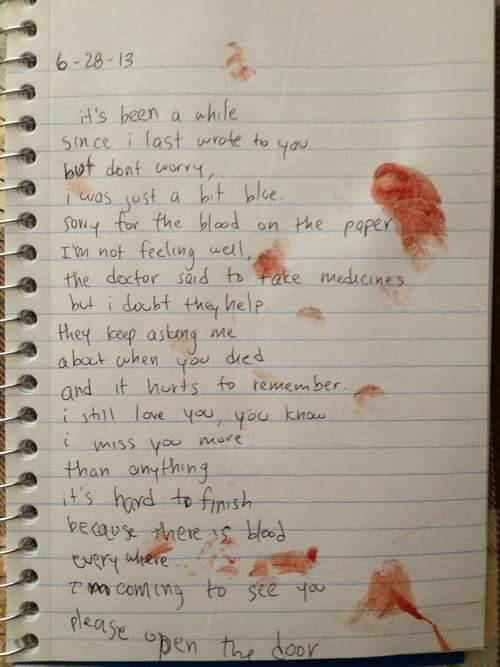 6-28-13
it's been a while
since i last wrote to you
but dont worry,
i was just a bit blue.
sorry for the blood on the paper
I'm not feeling well,
the doctor said to take medicines
but i doubt they help.
they keep asking me
about when you died
and it hurts to remember.
i still love you, you know
i miss you more
than anything
it's hard to finish
because there is blood
every where...
I'm coming to see you
please open the door